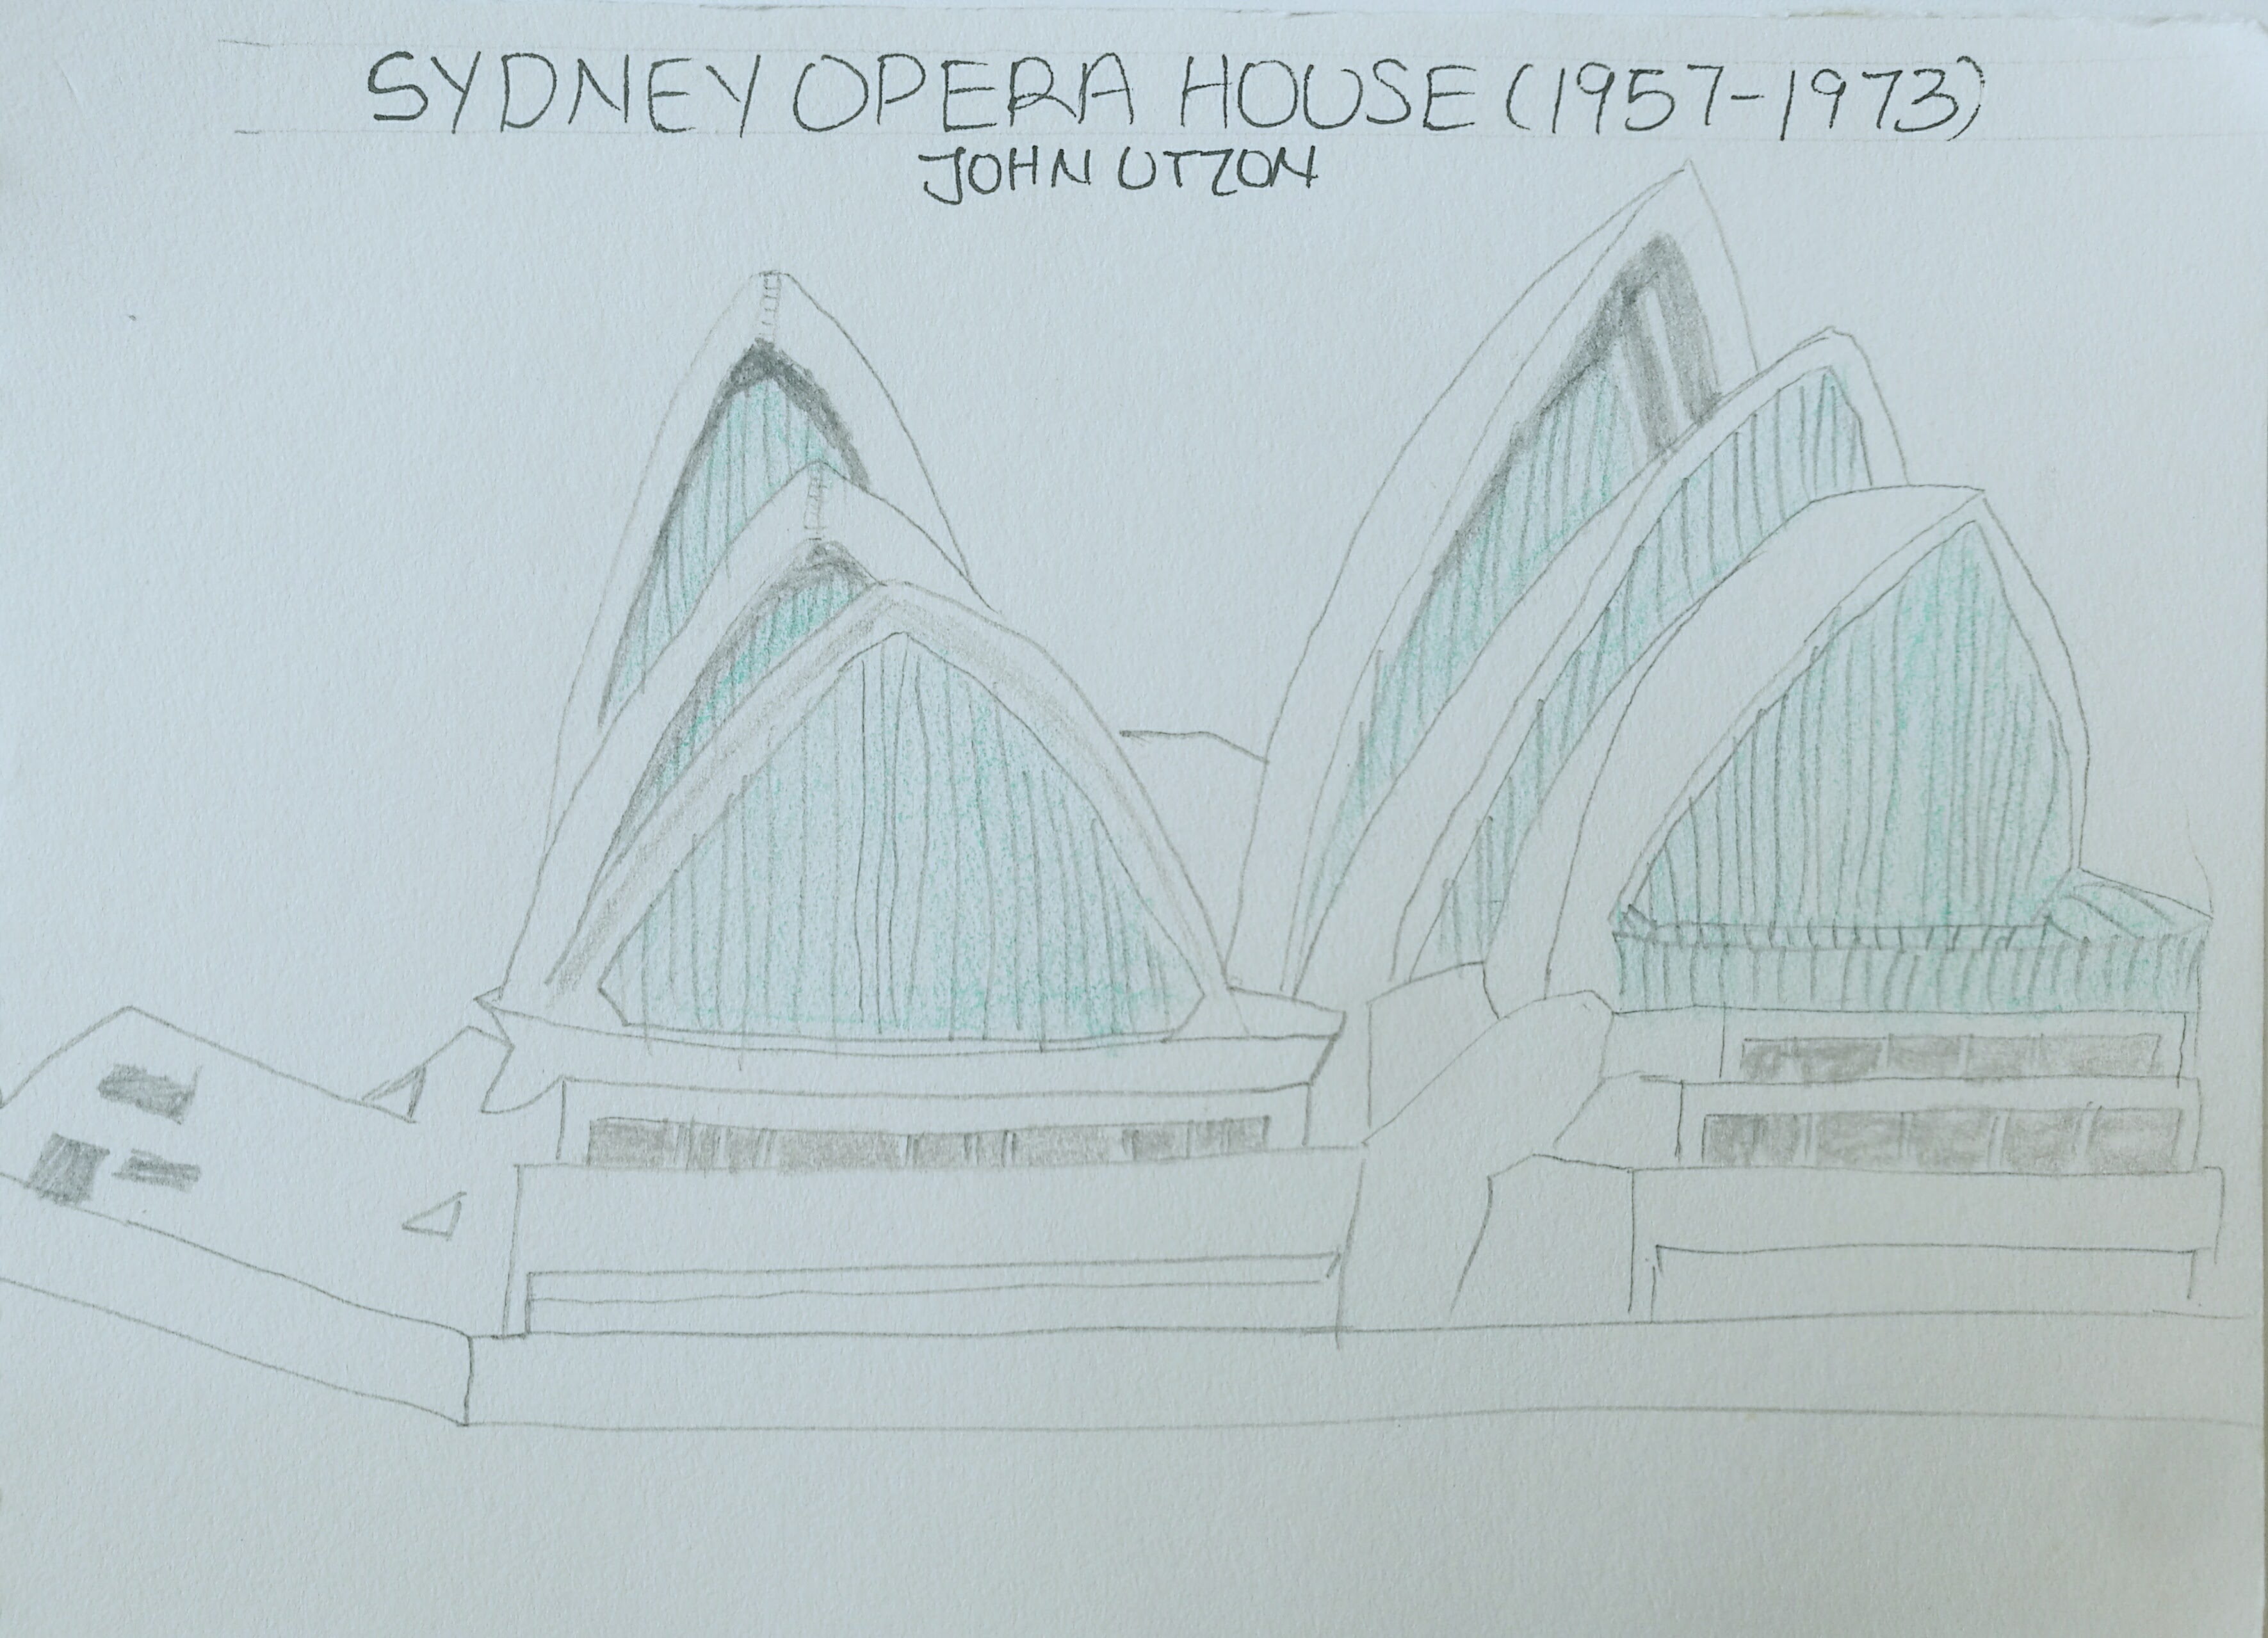 SYDNEY OPERA HOUSE (1957-1973)
JOHN UTZON